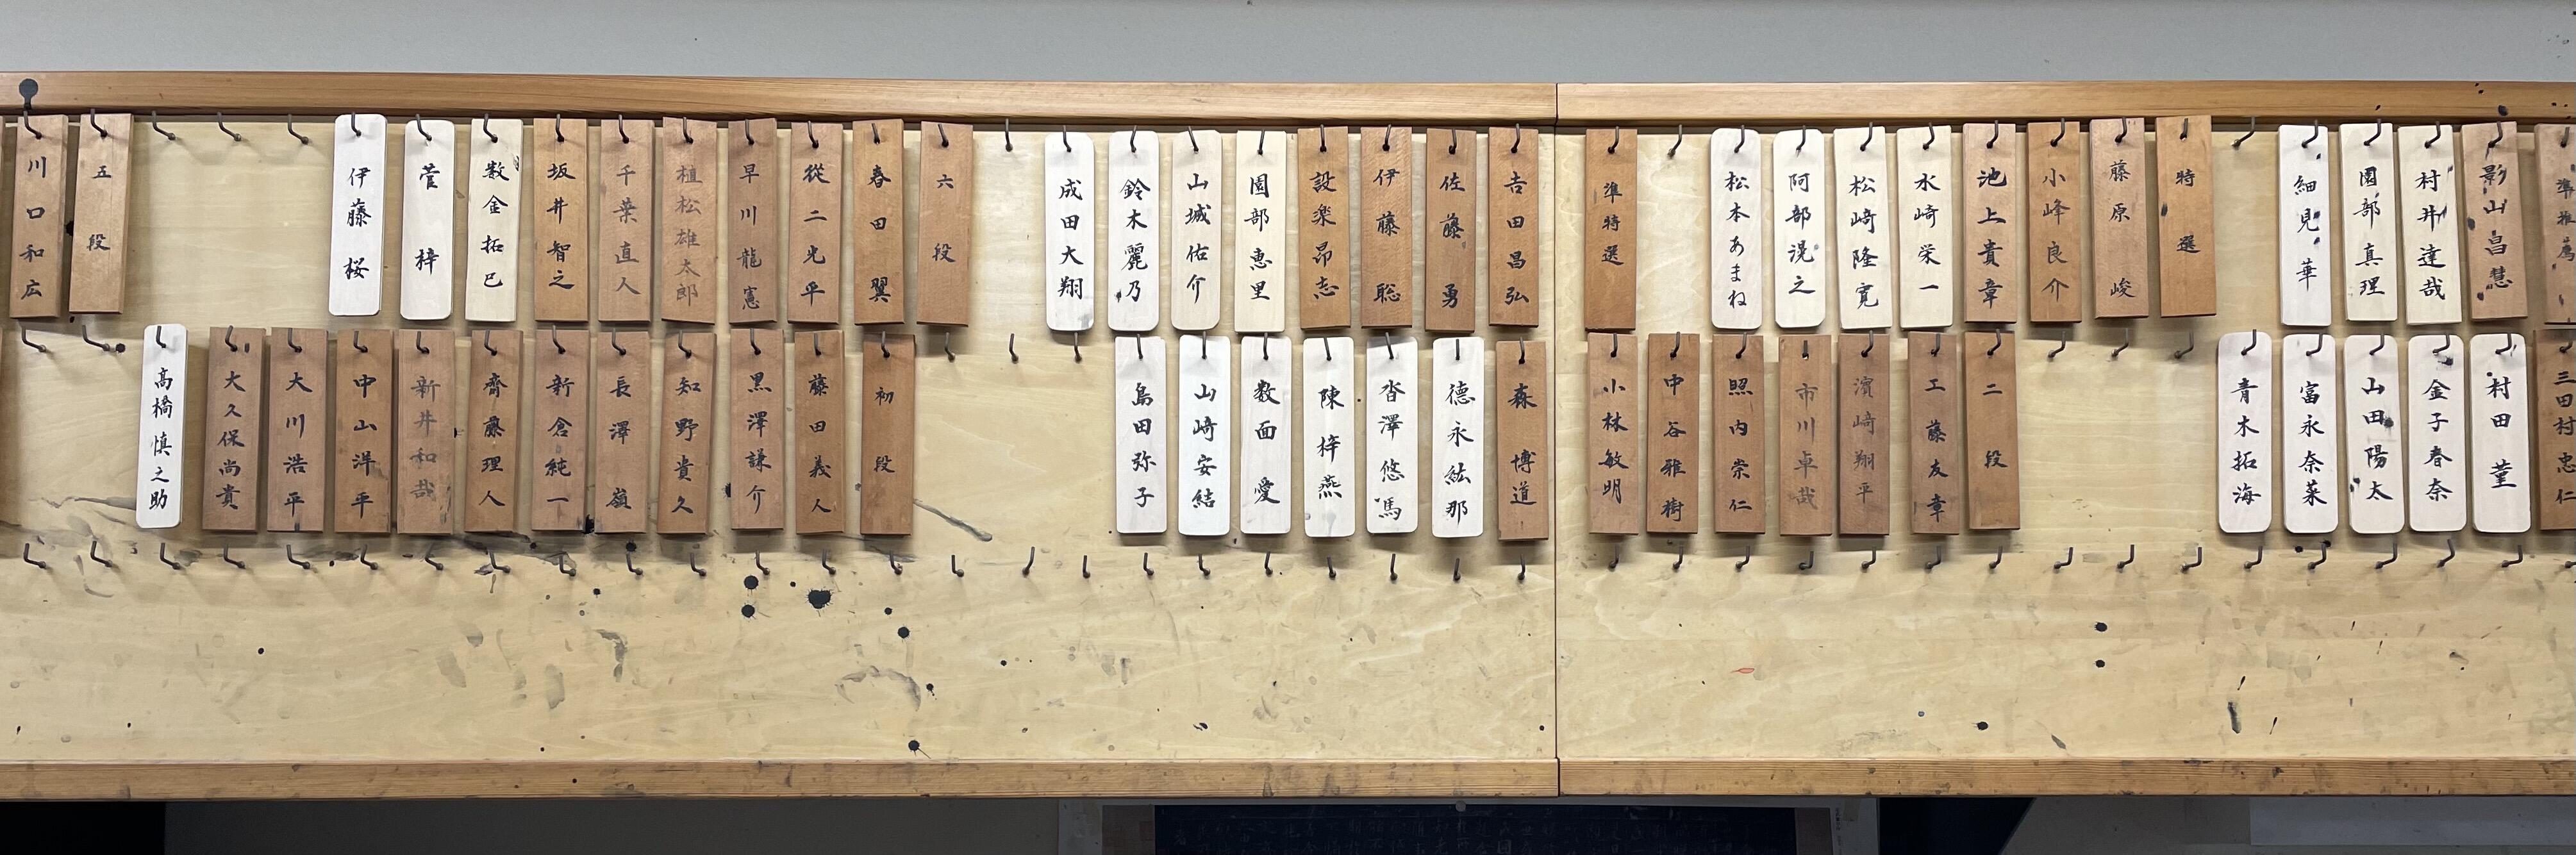 影山昌慧
村井達哉
園部真理
細見華
特選
藤原峻
小峰良介
池上貴章
水崎栄一
松崎隆寛
阿部滉之
松本あまね
準特選
吉田昌弘
佐藤勇
伊藤聡
設楽昂志
園部恵里
山城佑介
鈴木麗乃
成田大翔
六段
春田翼
従二光平
早川龍憲
植松雄太郎
千葉直人
坂井智之
数金拓巳
菅梓
伊藤桜
五段
川口和広
三田村忠仁
村田菫
金子春奈
山田陽太
富永奈菜
青木拓海
二段
工藤友章
濱崎翔平
市川卓哉
照内崇仁
中谷雅樹
小林敏明
森博道
德永紘那
沓澤悠馬
陳梓燕
数面愛
山崎安結
島田弥子
初段
藤田義人
黒澤謙介
知野貴久
長澤嶺
新倉純一
齊藤理人
新井和哉
中山洋平
大川浩平
大久保尚貴
高橋慎之助